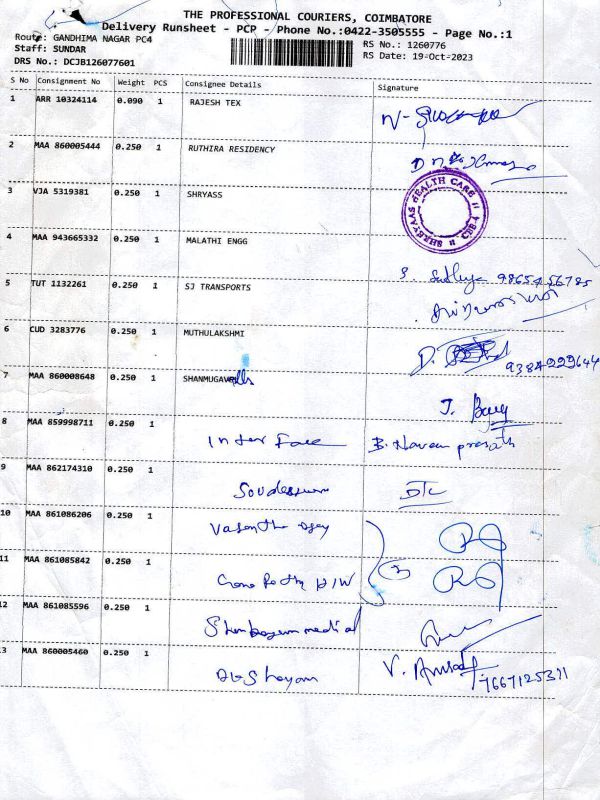 THE PROFESSIONAL COURIERS, COIMBATORE
Delivery Runsheet - PCP - Phone No.:0422-3505555 - Page No.:1
Route: GANDHIMA NAGAR PC4
RS No.: 1260776
Staff: SUNDAR
RS Date: 19-Oct-2023
DRS No.: DCJB126077601
S No Consignment No Weight PCS Consignee Details Signature
1 ARR 10324114 0.090 1 RAJESH TEX
2 MAA 860005444 0.250 1 RUTHIRA RESIDENCY
3 VJA 5319381 0.250 1 SHRYASS
SHREYAAS HEALTH CARE CBE-4
4 MAA 943665332 0.250 1 MALATHI ENGG
S. Sathya 9865456785
5 TUT 1132261 0.250 1 SJ TRANSPORTS
6 CUD 3283776 0.250 1 MUTHULAKSHMI
D. 9384999644
7 MAA 860008648 0.250 1 SHANMUGAValls
J.
8 MAA 859998711 0.250 1 Inter Face B. Naveen prasath
9 MAA 862174310 0.250 1
10 MAA 861086206 0.250 1 Vasantha
11 MAA 861085842 0.250 1 H/W
3
12 MAA 861085596 0.250 1 medical
13 MAA 860005460 0.250 1
V. 7667125311